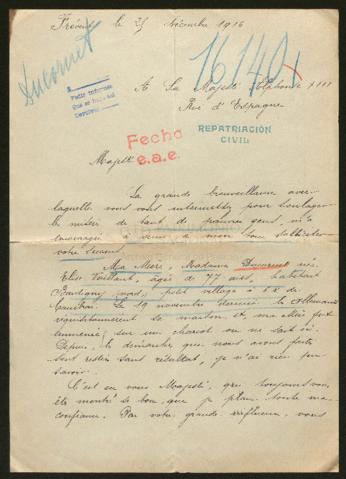 Frévent le 25 Décembre 1916
Ducornet
16140
A Sa Majesté Alphonse XIII
Roi d'Espagne
Pedir informes
Fecho
e.a.e.
REPATRIACIÓN
CIVIL
Majesté
La grande bienveillance avec
laquelle vous vous intermettez pour soulager
la misère de tant de pauvres gens, m'a
encouragée à venir à mon tour solliciter
votre secours.
Ma Mère, Madame Ducornet née
Elise Vaillant, âgée de 77 ans, habitant
petit village à
Cambrai. Le 19 novembre dernier les Allemands
sa maison et, ma mère fut
emmenée sur un chariot on ne sait où.
Depuis, les démarches que nous avons faites
sont restées sans résultat, je n'ai rien pu
savoir.
C'est en vous Majesté, qui toujours vous
êtes montré si bon, que je place toute ma
confiance. Par votre grande influence, vous